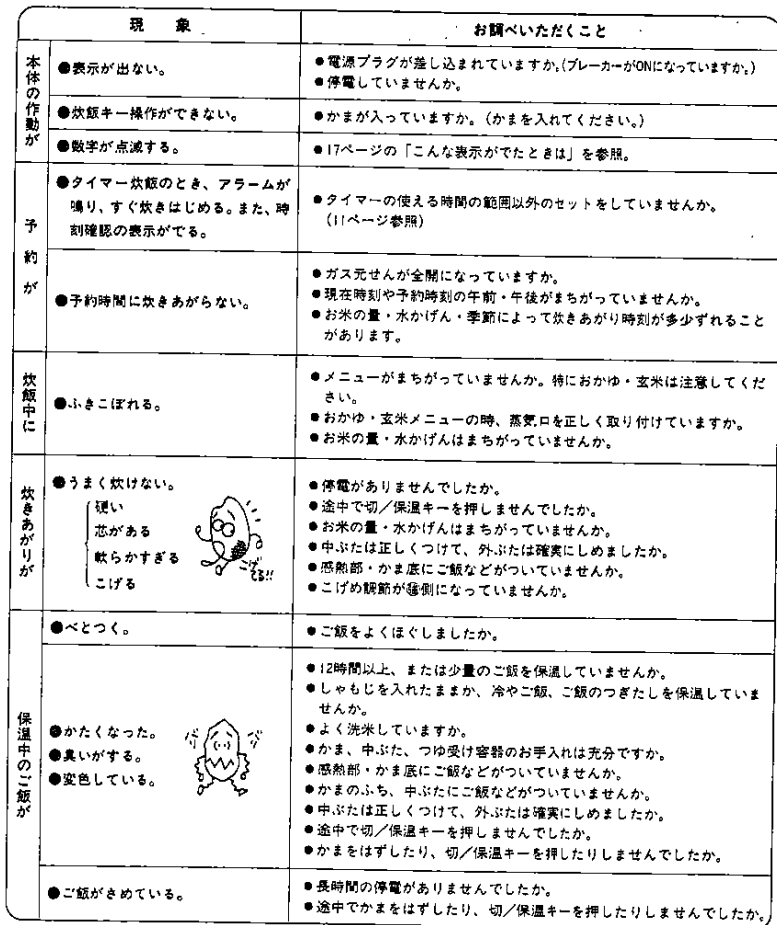 現象
お調べいただくこと
本体の作動が
●表示が出ない。
●電源プラグが差し込まれていますか。(ブレーカーがONになっていますか。)
●停電していませんか。
●炊飯キー操作ができない。
●かまが入っていますか。(かまを入れてください。)
●数字が点滅する。
●17ページの「こんな表示がでたときは」を参照。
予約が
●タイマー炊飯のとき、アラームが
鳴り、すぐ炊きはじめる。また、時
刻確認の表示がでる。
●タイマーの使える時間の範囲以外のセットをしていませんか。
(11ページ参照)
●予約時間に炊きあがらない。
●ガス元せんが全開になっていますか。
●現在時刻や予約時刻の午前・午後がまちがっていませんか。
●お米の量・水かげん・季節によって炊きあがり時刻が多少ずれること
があります。
炊飯中に
●ふきこぼれる。
●メニューがまちがっていませんか。特におかゆ・玄米は注意してくだ
さい。
●おかゆ・玄米メニューの時、蒸気口を正しく取り付けていますか。
●お米の量・水かげんはまちがっていませんか。
炊きあがりが
●うまく炊けない。
硬い
芯がある
軟らかすぎる
こげる
こげてる!!
●停電がありませんでしたか。
●途中で切/保温キーを押しませんでしたか。
●お米の量・水かげんはまちがっていませんか。
●中ぶたは正しくつけて、外ぶたは確実にしめましたか。
●感熱部・かま底にご飯などがついていませんか。
●こげめ調節が側になっていませんか。
保温中のご飯が
●べとつく。
●ご飯をよくほぐしましたか。
●かたくなった。
●臭いがする。
●変色している。
●12時間以上、または少量のご飯を保温していませんか。
●しゃもじを入れたままか、冷やご飯、ご飯のつぎたしを保温していま
せんか。
●よく洗米していますか。
●かま、中ぶた、つゆ受け容器のお手入れは充分ですか。
●感熱部・かま底にご飯などがついていませんか。
●かまのふち、中ぶたにご飯などがついていませんか。
●中ぶたは正しくつけて、外ぶたは確実にしめましたか。
●途中で切/保温キーを押しませんでしたか。
●かまをはずしたり、切/保温キーを押したりしませんでしたか。
●ご飯がさめている。
●長時間の停電がありませんでしたか。
●途中でかまをはずしたり、切/保温キーを押したりしませんでしたか。